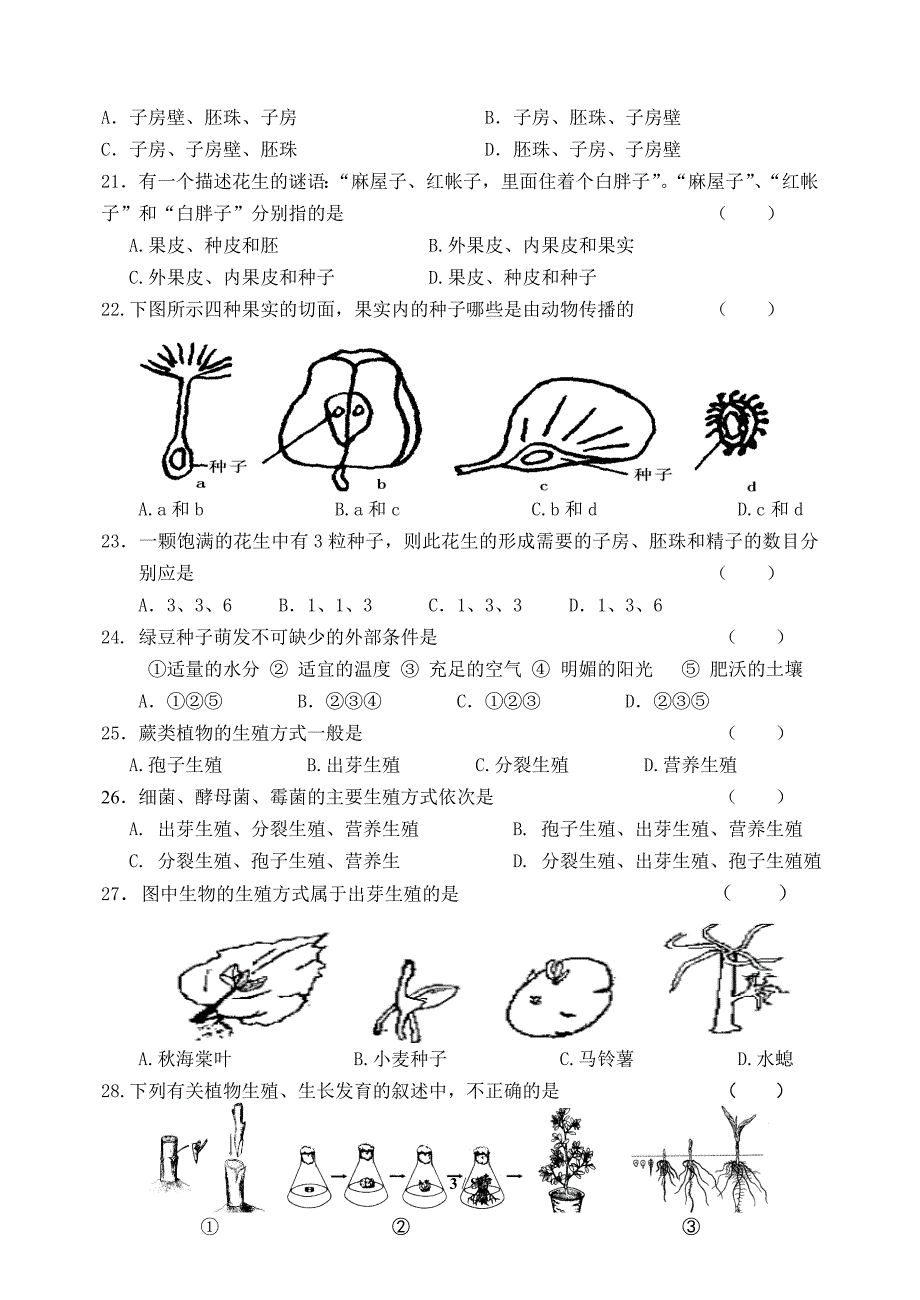 A．子房壁、胚珠、子房 B．子房、胚珠、子房壁
C．子房、子房壁、胚珠 D．胚珠、子房、子房壁
21．有一个描述花生的谜语：“麻屋子、红帐子，里面住着个白胖子”。“麻屋子”、“红帐
子”和“白胖子”分别指的是 （ ）
A.果皮、种皮和胚 B.外果皮、内果皮和果实
C.外果皮、内果皮和种子 D.果皮、种皮和种子
22.下图所示四种果实的切面，果实内的种子哪些是由动物传播的 （ ）
种子 a b c 种子 d
A.a 和 b B.a 和 c C.b 和 d D.c 和 d
23．一颗饱满的花生中有 3 粒种子，则此花生的形成需要的子房、胚珠和精子的数目分
别应是 （ ）
A．3、3、6 B．1、1、3 C．1、3、3 D．1、3、6
24．绿豆种子萌发不可缺少的外部条件是 （ ）
①适量的水分 ② 适宜的温度 ③ 充足的空气 ④ 明媚的阳光 ⑤ 肥沃的土壤
A．①②⑤ B．②③④ C．①②③ D．②③⑤
25．蕨类植物的生殖方式一般是 （ ）
A.孢子生殖 B.出芽生殖 C.分裂生殖 D.营养生殖
26．细菌、酵母菌、霉菌的主要生殖方式依次是 （ ）
A. 出芽生殖、分裂生殖、营养生殖 B. 孢子生殖、出芽生殖、营养生殖
C. 分裂生殖、孢子生殖、营养生 D. 分裂生殖、出芽生殖、孢子生殖殖
27．图中生物的生殖方式属于出芽生殖的是 （ ）
A.秋海棠叶 B.小麦种子 C.马铃薯 D.水螅
28.下列有关植物生殖、生长发育的叙述中，不正确的是 （ ）
3
① ② ③